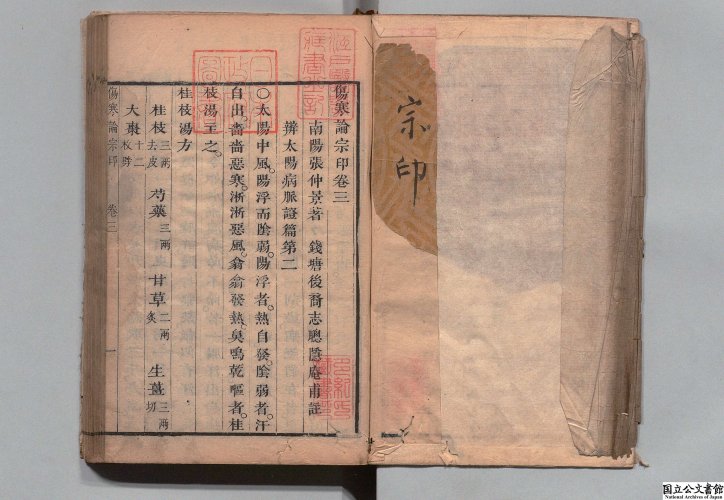 宗印
傷寒論宗印卷三
南陽張仲景著 錢塘後裔志聰隱庵甫註
辨太陽病脈證篇第二
〇太陽中風。陽浮而陰弱。陽浮者。熱自發。陰弱者。汗
自出。嗇嗇惡寒。淅淅惡風。翕翕發熱。鼻鳴乾嘔者。桂
枝湯主之。
桂枝湯方
桂枝三兩去皮 芍藥三兩 甘草二兩炙 生薑三兩切
大棗十二枚擘
傷寒論宗印 卷三 一
国立公文書館
National Archives of Japan